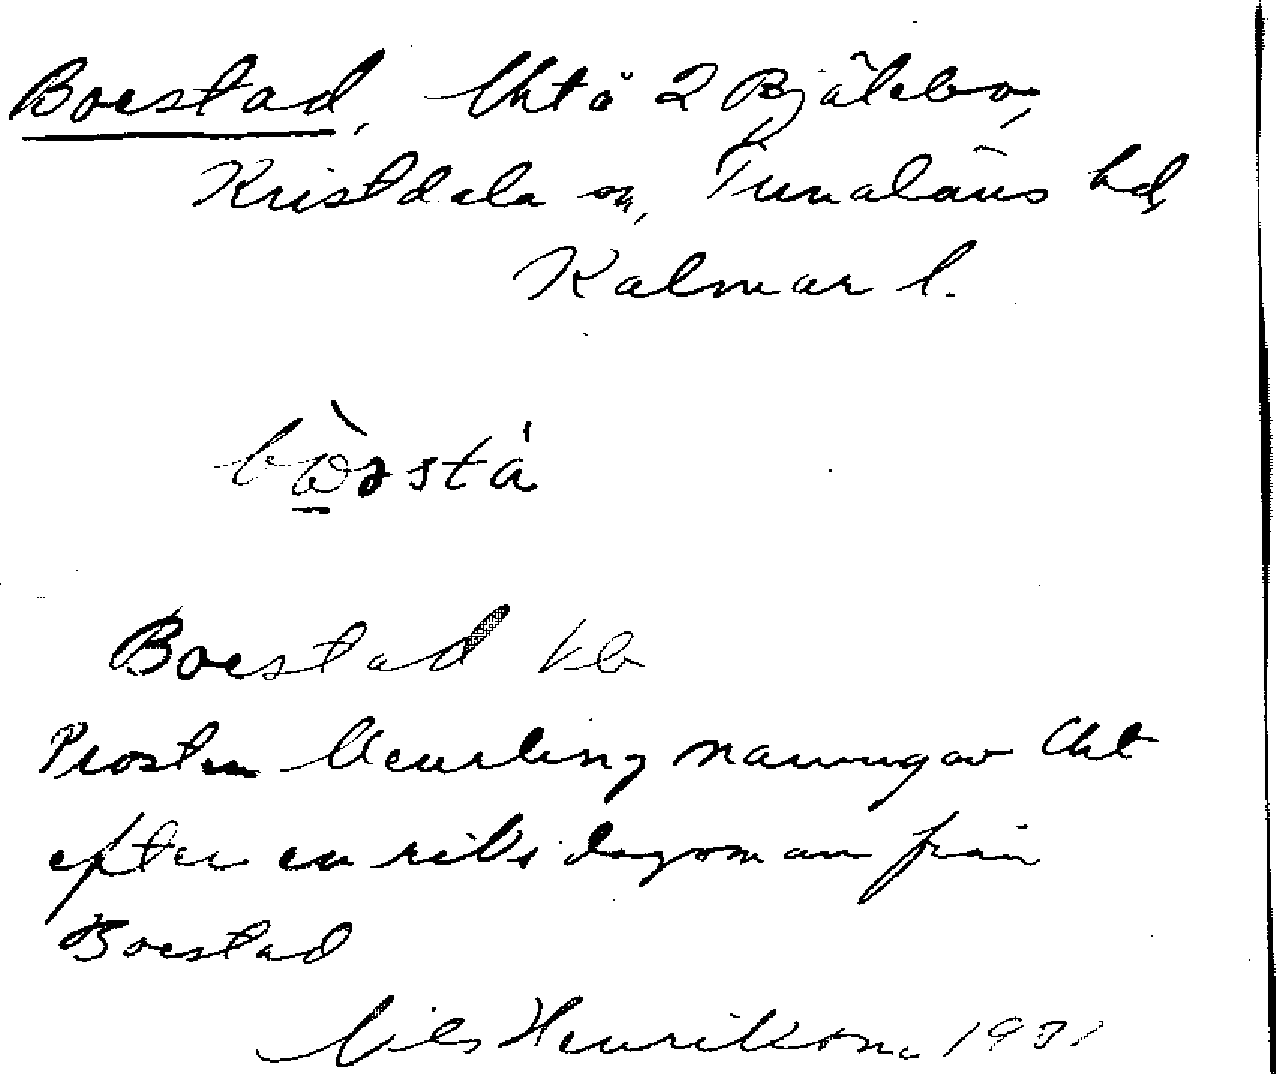 Boestad, Uhtö 2 Bjälebo,
Kristdala sn, Tunaläns hd,
Kalmar l.
bòəstá
Boestad kb
Prosten Meurling namngav
efter en riksdagsman från
Boestad
Nils Henrikson 1931